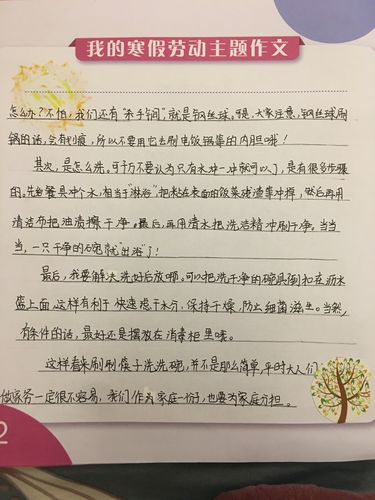 我的寒假劳动主题作文
怎么办?不怕,我们还有"杀手锏"就是钢丝球。可是,大家注意,钢丝球刷
锅的话,会有划痕,所以不要用它去刷电饭锅等的内胆哦!
其次,是怎么洗。可千万不要认为只有水冲一冲就可以了,是有很多步骤
的。先给餐具冲个水,相当于"淋浴"把粘在表面的饭菜残渣等冲掉,然后再用
清洁布把油渍擦干净。最后,再用清水把洗洁精冲刷干净。当当
当,一只干净的碗就"出浴"了!
最后,我要解决洗好后放哪。可以把洗干净的碗具倒扣在沥水
篮上面,这样有利于快速滤干水分,保持干燥,防止细菌滋生。当然,
有条件的话,最好还是摆放在消毒柜里哦。
这样看来刷刷筷子洗洗碗,并不是那么简单,平时大人们
做家务一定很不容易,我们作为家庭一份子,也要为家庭分担。
2